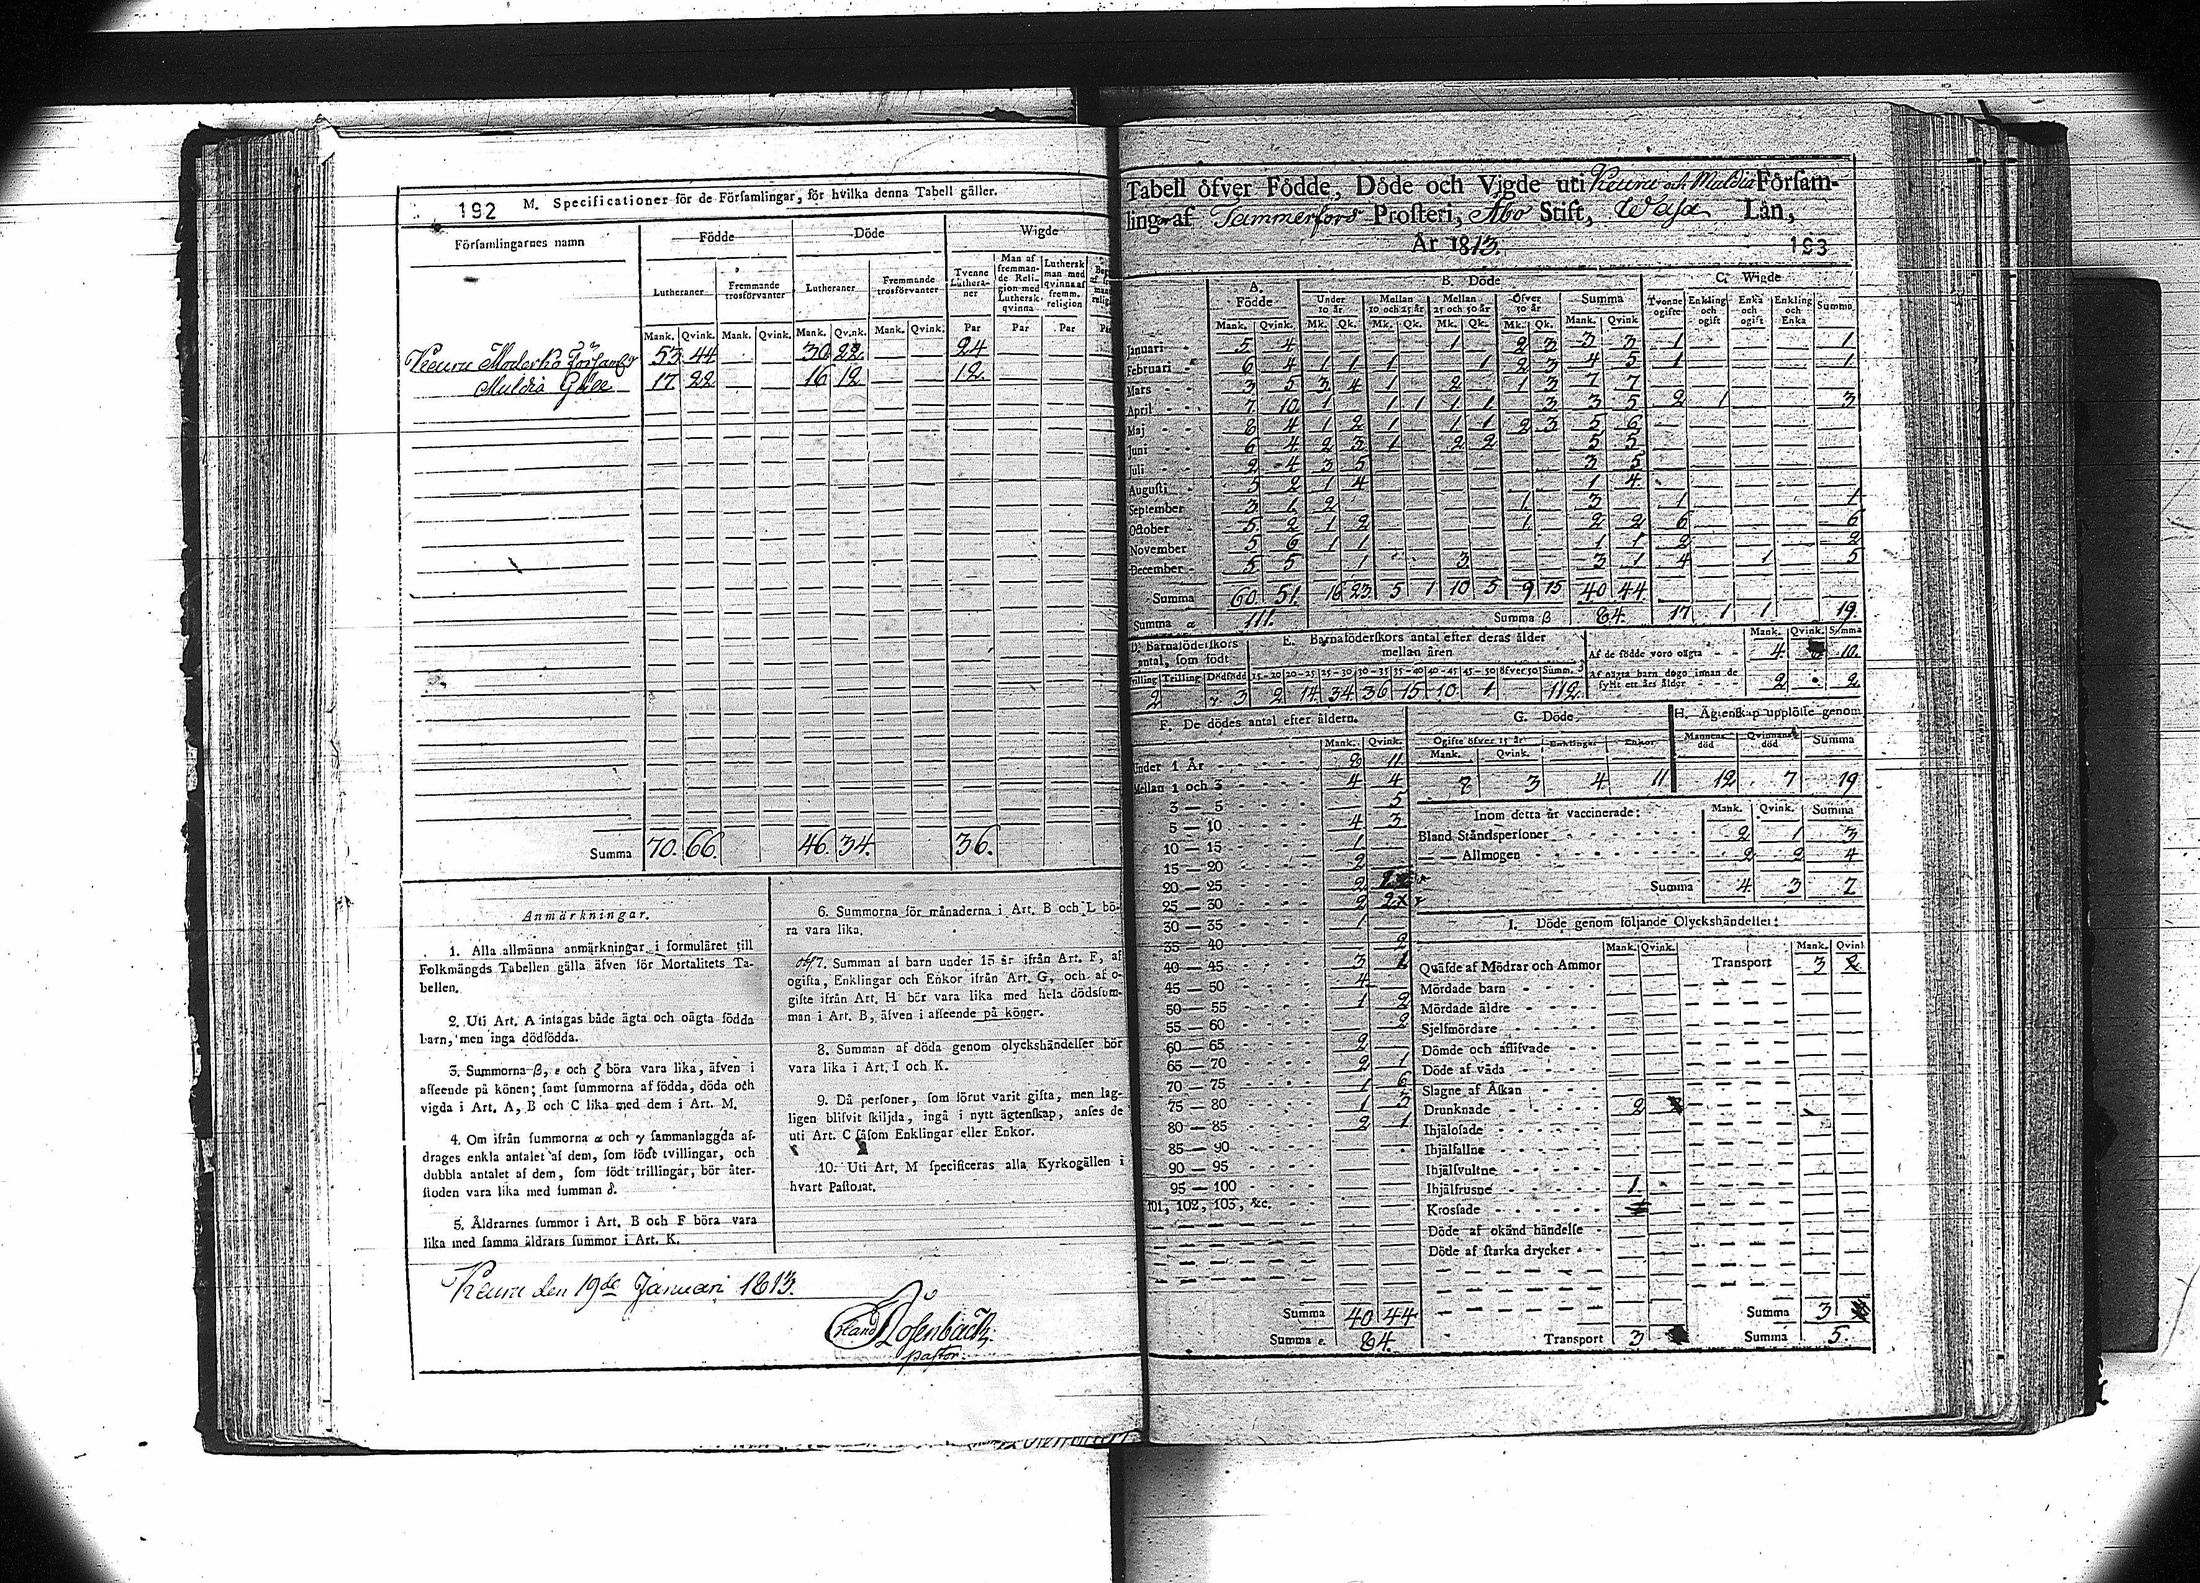 192 M. Specificationer för de Församlingar, för hvilka denna Tabell gäller.
Församlingarnes namn Födde Döde Wigde
Lutheraner Fremmande trosförvanter Lutheraner Fremmande trosförvanter Tvenne Luthera- ner Man af fremman- de Reli- gion med Luthersk qvinna Luthersk man med qvinna af fremm. religion
Mank. Qvink. Mank. Qvink. Mank. Qvink. Mank. Qvink. Par Par Par
Keuru Moderko Förs 53 44 30 22 24
Muldia 17 22 16 12 12
Summa 70. 66. 46. 34. 36.
Anmärkningar.
1. Alla allmänna anmärkningar i formuläret till
Folkmängds Tabellen gälla äfven för Mortalitets Ta-
bellen.
2. Uti Art. A intagas både ägta och oägta födda
barn, men inga dödfödda.
3. Summorna β, ε och ζ böra vara lika, äfven i
afseende på könen; samt summorna af födda, döda och
vigda i Art. A, B och C lika med dem i Art. M.
4. Om ifrån summorna α och γ sammanlagda af-
drages enkla antalet af dem, som födt tvillingar, och
dubbla antalet af dem, som födt trillingar, bör åter-
stoden vara lika med summan δ.
5. Åldrarnes summor i Art. B och F böra vara
lika med samma åldrars summor i Art. K.
6. Summorna för månaderna i Art. B och L bö-
ra vara lika.
7. Summan af barn under 15 år ifrån Art. F, af
ogifta, Enklingar och Enkor ifrån Art. G, och af o-
gifte ifrån Art. H bör vara lika med hela dödsum-
man i Art. B, äfven i afseende på könen.
8. Summan af döda genom olyckshändelser bör
vara lika i Art. I och K.
9. Då personer, som förut varit gifta, men lag-
ligen blifvit skiljda, ingå i nytt ägtenskap, anses de
uti Art. C såsom Enklingar eller Enkor.
10. Uti Art. M specificeras alla Kyrkogällen i
hvart Pastorat.
Keuru den 19de Januari 1813.
Erland Rosenback
pastor.
Tabell öfver Födde, Döde och Vigde uti Keuru och Muldia Församling
af Tammerfors Prosteri, Åbo Stift, Wasa Län,
År 1813. 193
A. Födde B. Döde C. Wigde
Under 10 år Mellan 10 och 25 år Mellan 25 och 50 år Öfver 50 år Summa Tvenne ogifte Enkling och ogift Enka och ogift Enkling och Enka Summa
Mank. Qvink. Mk. Qk. Mk. Qk. Mk. Qk. Mk. Qk. Mank. Qvink
Januari 5 4 1 2 3 3 3 1 1
Februari 6 4 1 1 1 1 2 3 4 5 1 1
Mars 3 5 3 4 1 2 1 3 7 7
April 7 10 1 1 1 1 1 3 3 5 2 1 3
Maj 8 4 1 2 1 1 1 2 3 5 6
Juni 6 4 2 3 1 2 2 5 5
Juli 2 4 3 5 3 5
Augusti 5 2 1 4 1 4
September 3 1 2 1 3 1 1
October 5 2 1 2 1 2 2 6 6
November 5 6 1 1 1 1 2 2
December 5 5 1 3 3 1 4 1 5
Summa 60 51 16 23 5 1 10 5 9 15 40 44
Summa α 111. Summa β 84. 17 1 1 19.
D. Barnaföderskors antal, som födt
Trilling Dödfödd
2 3
E. Barnaföderskors antal efter deras ålder
mellan åren
15-20 20-25 25-30 30-35 35-40 40-45 45-50 öfver 50 Summ. δ
2 14 34 36 15 10 1 112
Mank. Qvink. Summa
Af de födde voro oägta 4 10.
Af oägta barn dogo innan de
fyllt ett års ålder 2 2
F. De dödes antal efter åldern.
Mank. Qvink.
Under 1 År 8 11
Mellan 1 och 3 4 4
3 — 5 5
5 — 10 4 3
10 — 15 1
15 — 20 2
20 — 25 2
25 — 30 2 2
30 — 35 1
35 — 40 2
40 — 45 3 1
45 — 50 4
50 — 55 1 2
55 — 60 2
60 — 65 2
65 — 70 2 1
70 — 75 1 6
75 — 80 1 3
80 — 85 2 1
85 — 90
90 — 95
95 — 100
101, 102, 103, &c.
Summa 40 44
Summa ε. 84.
G. Döde
Ogifte öfver 15 år Enklingar Enkor
Mank. Qvink.
8 3 4 11
H. Ägtenskap upplöste genom
Mannens död Qvinnans död Summa
12 7 19
Inom detta år vaccinerade: Mank. Qvink. Summa
Bland Ståndspersoner 2 1 3
— — Allmogen 2 2 4
Summa 4 3 7
I. Döde genom följande Olyckshändelser:
Mank. Qvink. Mank. Qvink
Quäfde af Mödrar och Ammor Transport 3 2
Mördade barn
Mördade äldre
Sjelfmördare
Dömde och aflifvade
Döde af våda
Slagne af Åskan
Drunknade 2
Ihjälosade
Ihjälfallne
Ihjälsvultne
Ihjälfrusne 1
Krossade
Döde af okänd händelse
Döde af starka drycker
Summa 3
Transport 3 Summa 5.